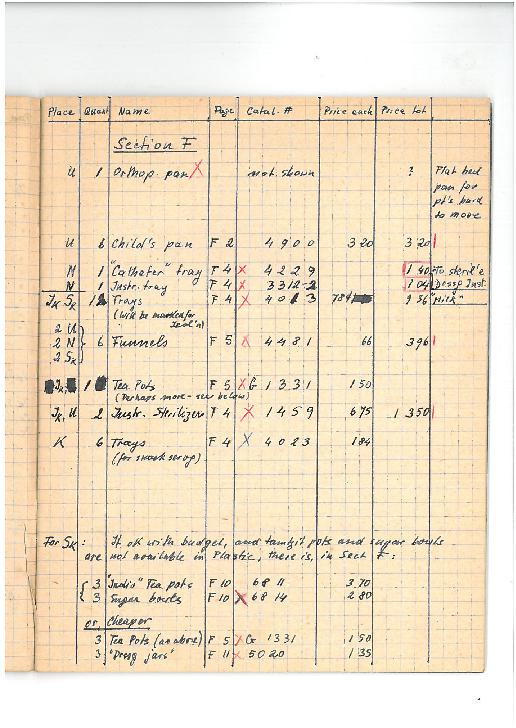 Place Quant Name Page Catal. # Price each Price tot
Section F
U 1 Orthop. pan X not shown ? Flat bed
pan for
pt's hard
to move
U 6 Child's pan F 2 4900 3 20 3 20
N 1 "Catheter" tray F 4 X 4229 1 40 To steril'e
N 1 Instr. tray F 4 X 3312-2 1 04 Dessg Inst.
Sk Trays F 4 X 4013 9 56 "Milk"
(Will be marked for
2 U
2 N 6 Funnels F 5 X 4481 66 3 96
2 Sk
Tea Pots F 5 X G 1331 1 50
(Perhaps more - see below)
U 2 Instr. Sterilizer F 4 X 1459 6 75 1 350
K 6 Trays F 4 X 4023 1 84
For Sk: If ok with budget, and if pots and sugar bowls
are not available in Plastic, there is, in Sect F:
3 "Indiv" Tea pots F 10 6811 3 70
3 Sugar bowls F 10 X 6814 2 80
or cheaper
3 Tea Pots (as above) F 5 X G 1331 1 50
3 "Dressg jars" F 11 X 5020 1 35